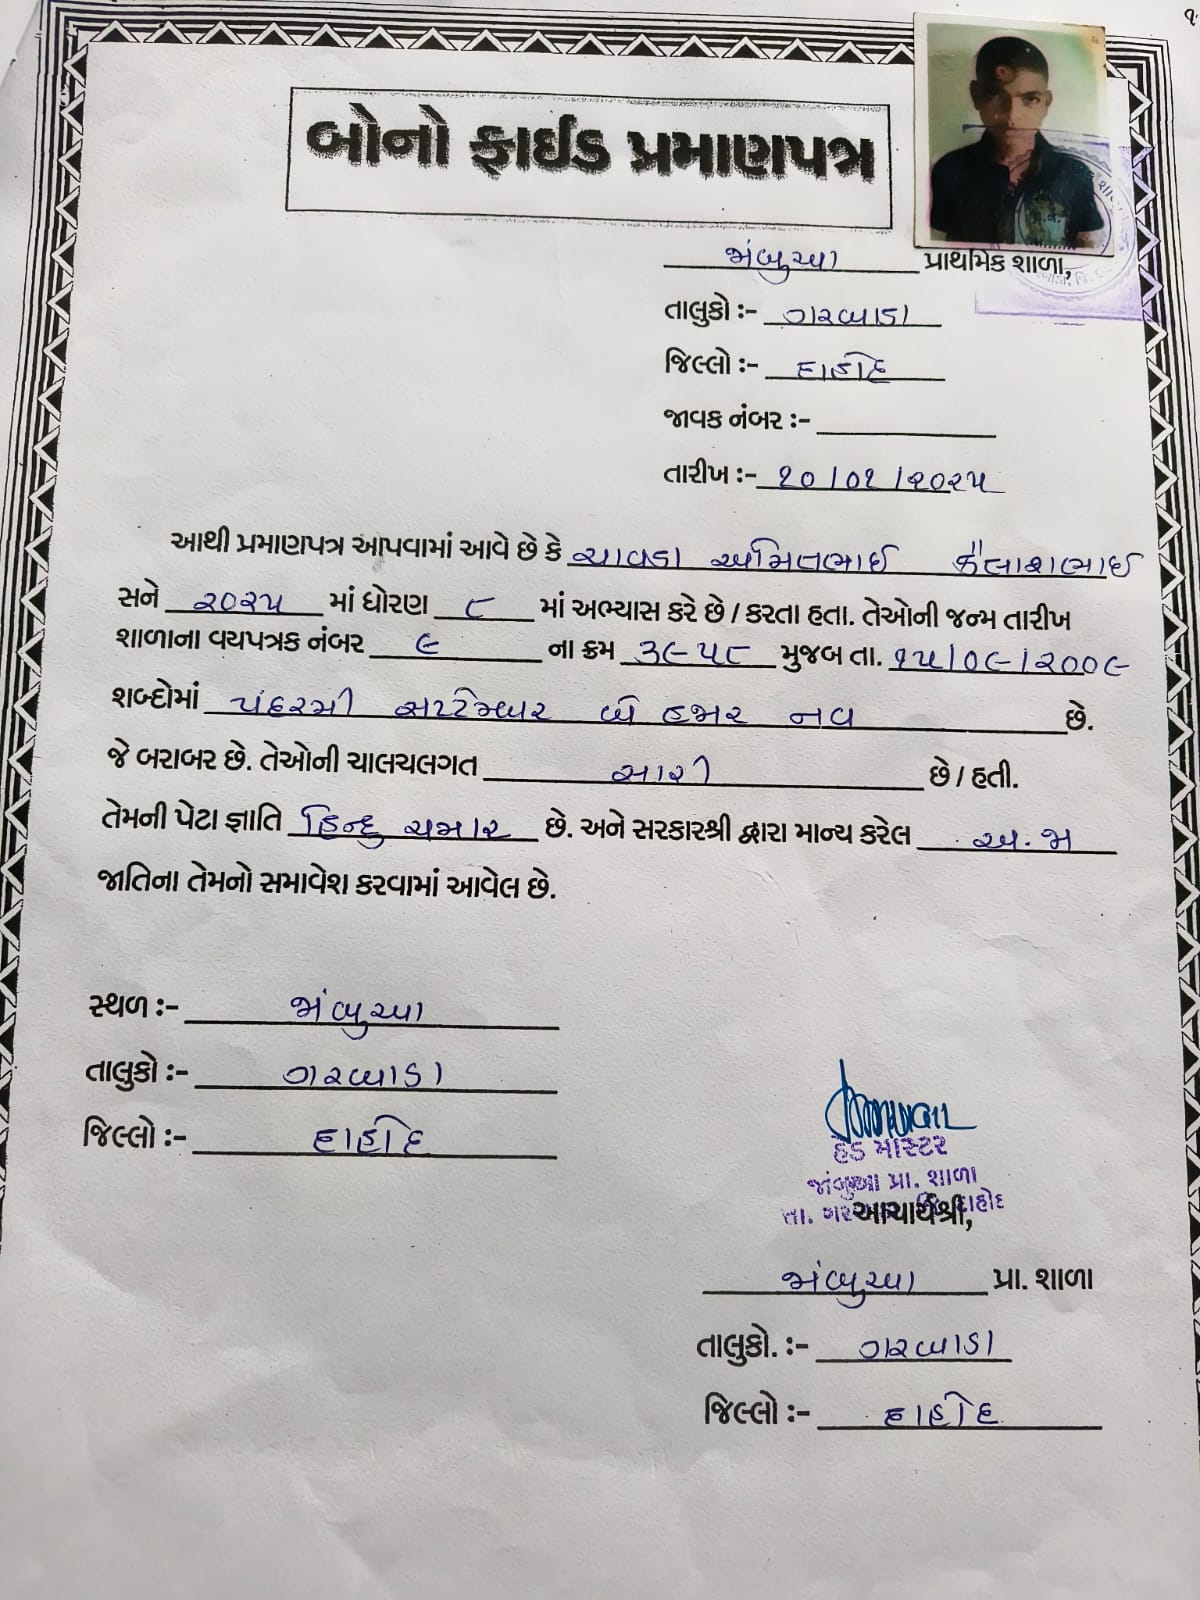 ૧
બોનો ફાઈડ પ્રમાણપત્ર
જાંબુઆ પ્રાથમિક શાળા,
તાલુકો :- ગરબાડા
જિલ્લો :- દાહોદ
જાવક નંબર :-
તારીખ :- ૧૦/૦૧/૨૦૨૫
આથી પ્રમાણપત્ર આપવામાં આવે છે કે ચાવડા અમિતભાઈ કૈલાશભાઈ
સને ૨૦૨૫ માં ધોરણ ૮ માં અભ્યાસ કરે છે / કરતા હતા. તેઓની જન્મ તારીખ
શાળાના વયપત્રક નંબર ૯ ના ક્રમ ૩૯૫૮ મુજબ તા. ૧૫/૦૯/૨૦૦૯
શબ્દોમાં પંદરમી સપ્ટેમ્બર બે હજાર નવ છે.
જે બરાબર છે. તેઓની ચાલચલગત સારી છે / હતી.
તેમની પેટા જ્ઞાતિ હિન્દુ ચમાર છે. અને સરકારશ્રી દ્વારા માન્ય કરેલ અ.જા
જાતિના તેમનો સમાવેશ કરવામાં આવેલ છે.
સ્થળ :- જાંબુઆ
તાલુકો :- ગરબાડા
જિલ્લો :- દાહોદ
હેડ માસ્ટર
જાંબુઆ પ્રા. શાળા
તા. ગર દાહોદ
આચાર્યશ્રી,
જાંબુઆ પ્રા. શાળા
તાલુકો. :- ગરબાડા
જિલ્લો :- દાહોદ